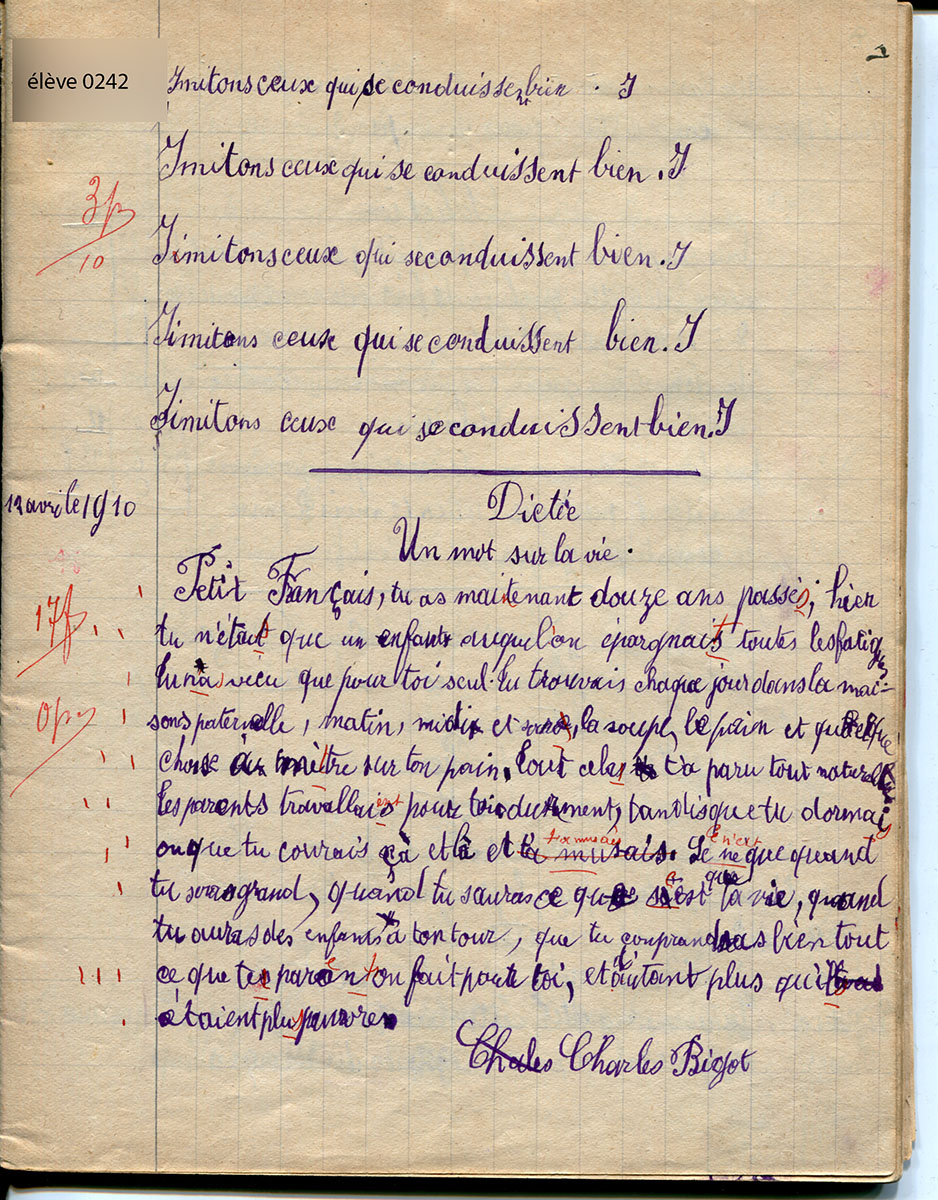 élève 0242
Imitons ceux qui se conduissent bien . I
Imitons ceux qui se conduissent bien . I
3f
10
Iimitons ceux qui se conduissent bien . I
Iimitons ceux qui se conduissent bien . I
Iimitons ceux qui se conduissent bien . I
12 avrile 1910
Dictée
Un mot sur la vie .
Petit Français, tu as maintenant douze ans passés ; hier
17f
tu n'était que un enfant auquel on épargnait toutes les fatigues
Tu n'a vécu que pour toi seul. Tu trouvais chaque jour dans la mai=
0p
sons paternelle, matin, midi et , la soupe, le pain et quelque
chose à mèttre sur ton pain. Tout cela t'a paru tout naturel
Les parents travallais pour toi durement, tandis que tu dormais
ou que tu courais çà et là et ta musais. Ce ne que quand
tu seras grand, quand tu sauras ce que s'est la vie, quand
tu auras des enfants à ton tour, que tu comprandras bien tout
ce que tes parent on fait pour toi, et d'autant plus qu'ils
étaient plus pauvres
Chales Charles Bigot